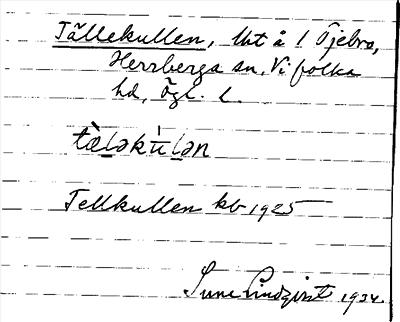 Tällekullen, Uht å 1 Öjebro,
Herrberga sn, Vifolka
hd, Ögl. L.
tæ̀ləkù̄lən
Tellkullen kb 1925
Sune Lindqvist 1934